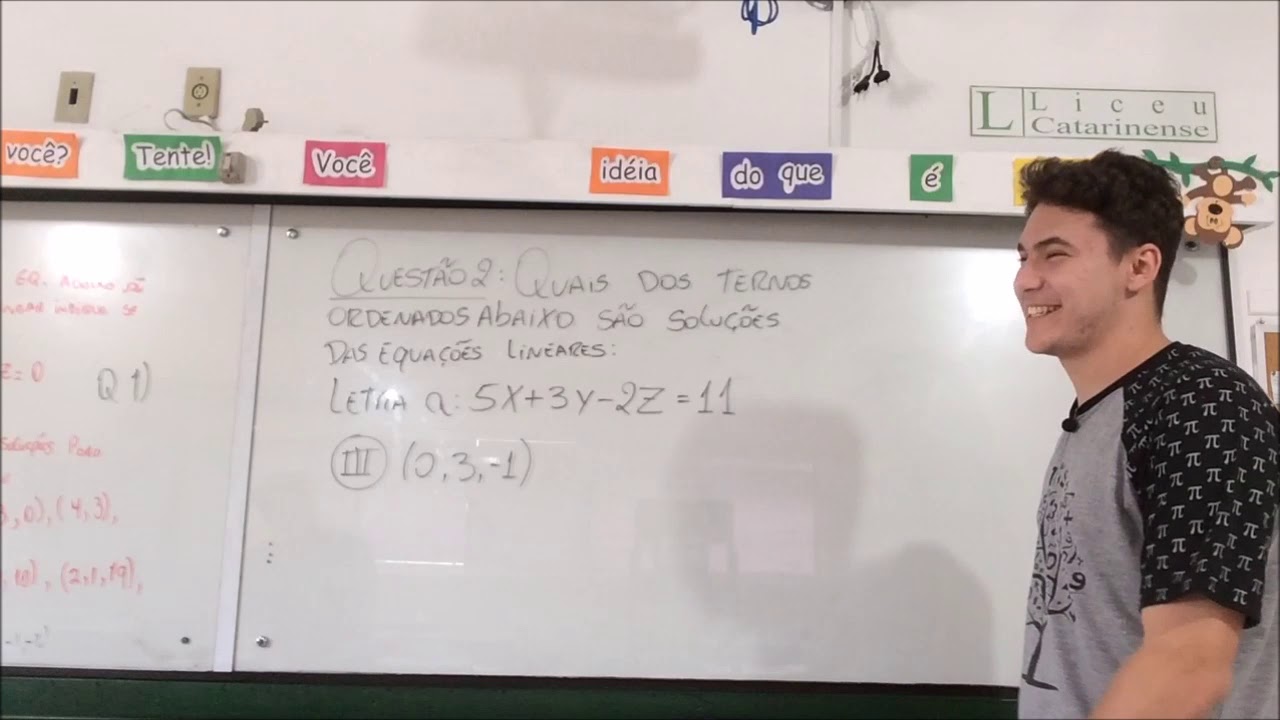 L Liceu
Catarinense
você? Tente! Você idéia do que é
QUESTÃO 2: QUAIS DOS TERNOS
ORDENADOS ABAIXO SÃO SOLUÇÕES
DAS EQUAÇÕES LINEARES:
LETRA a: 5X+3Y-2Z=11
III (0,3,-1)
EQ. ABAIXO
Z=0 Q 1)
soluções para
,0),(4,3),
,10), (2,1,19),